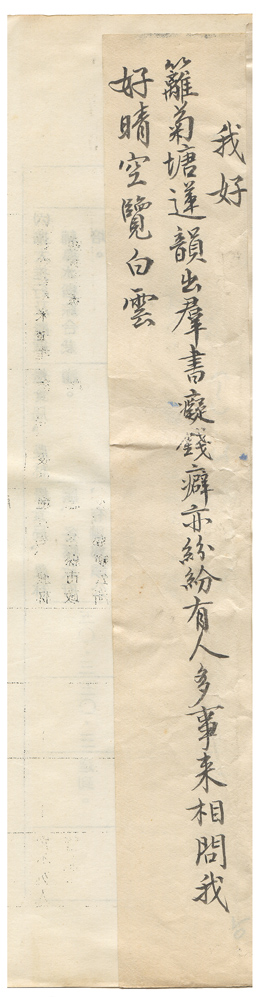 我好
籬菊塘蓮韻出羣書癡錢癖亦紛紛有人多事来相問我
好晴空覽白雲